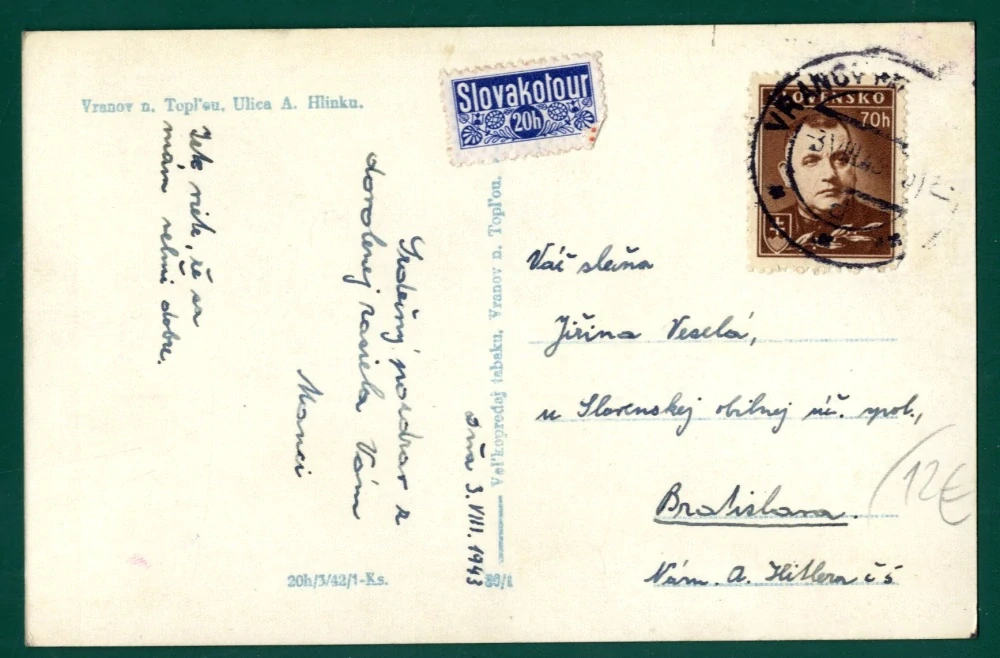 Vranov n. Topľou, Ulica A. Hlinku.
Slovakotour
20h
SLOVENSKO
70h
VRANOV
Srdečný pozdrav z
dovolenej zasiela Vám
Manci
dňa 3. VIII. 1943
že sa
mám veľmi dobre.
Veľkopredaj tabaku, Vranov n. Topľou.
20h/3/42/1-Ks.
80/1
Váž slečna
Jiřina Veselá,
u Slovenskej obilnej úč. spol.,
Bratislava.
Nám. A. Hitlera č 5
12€